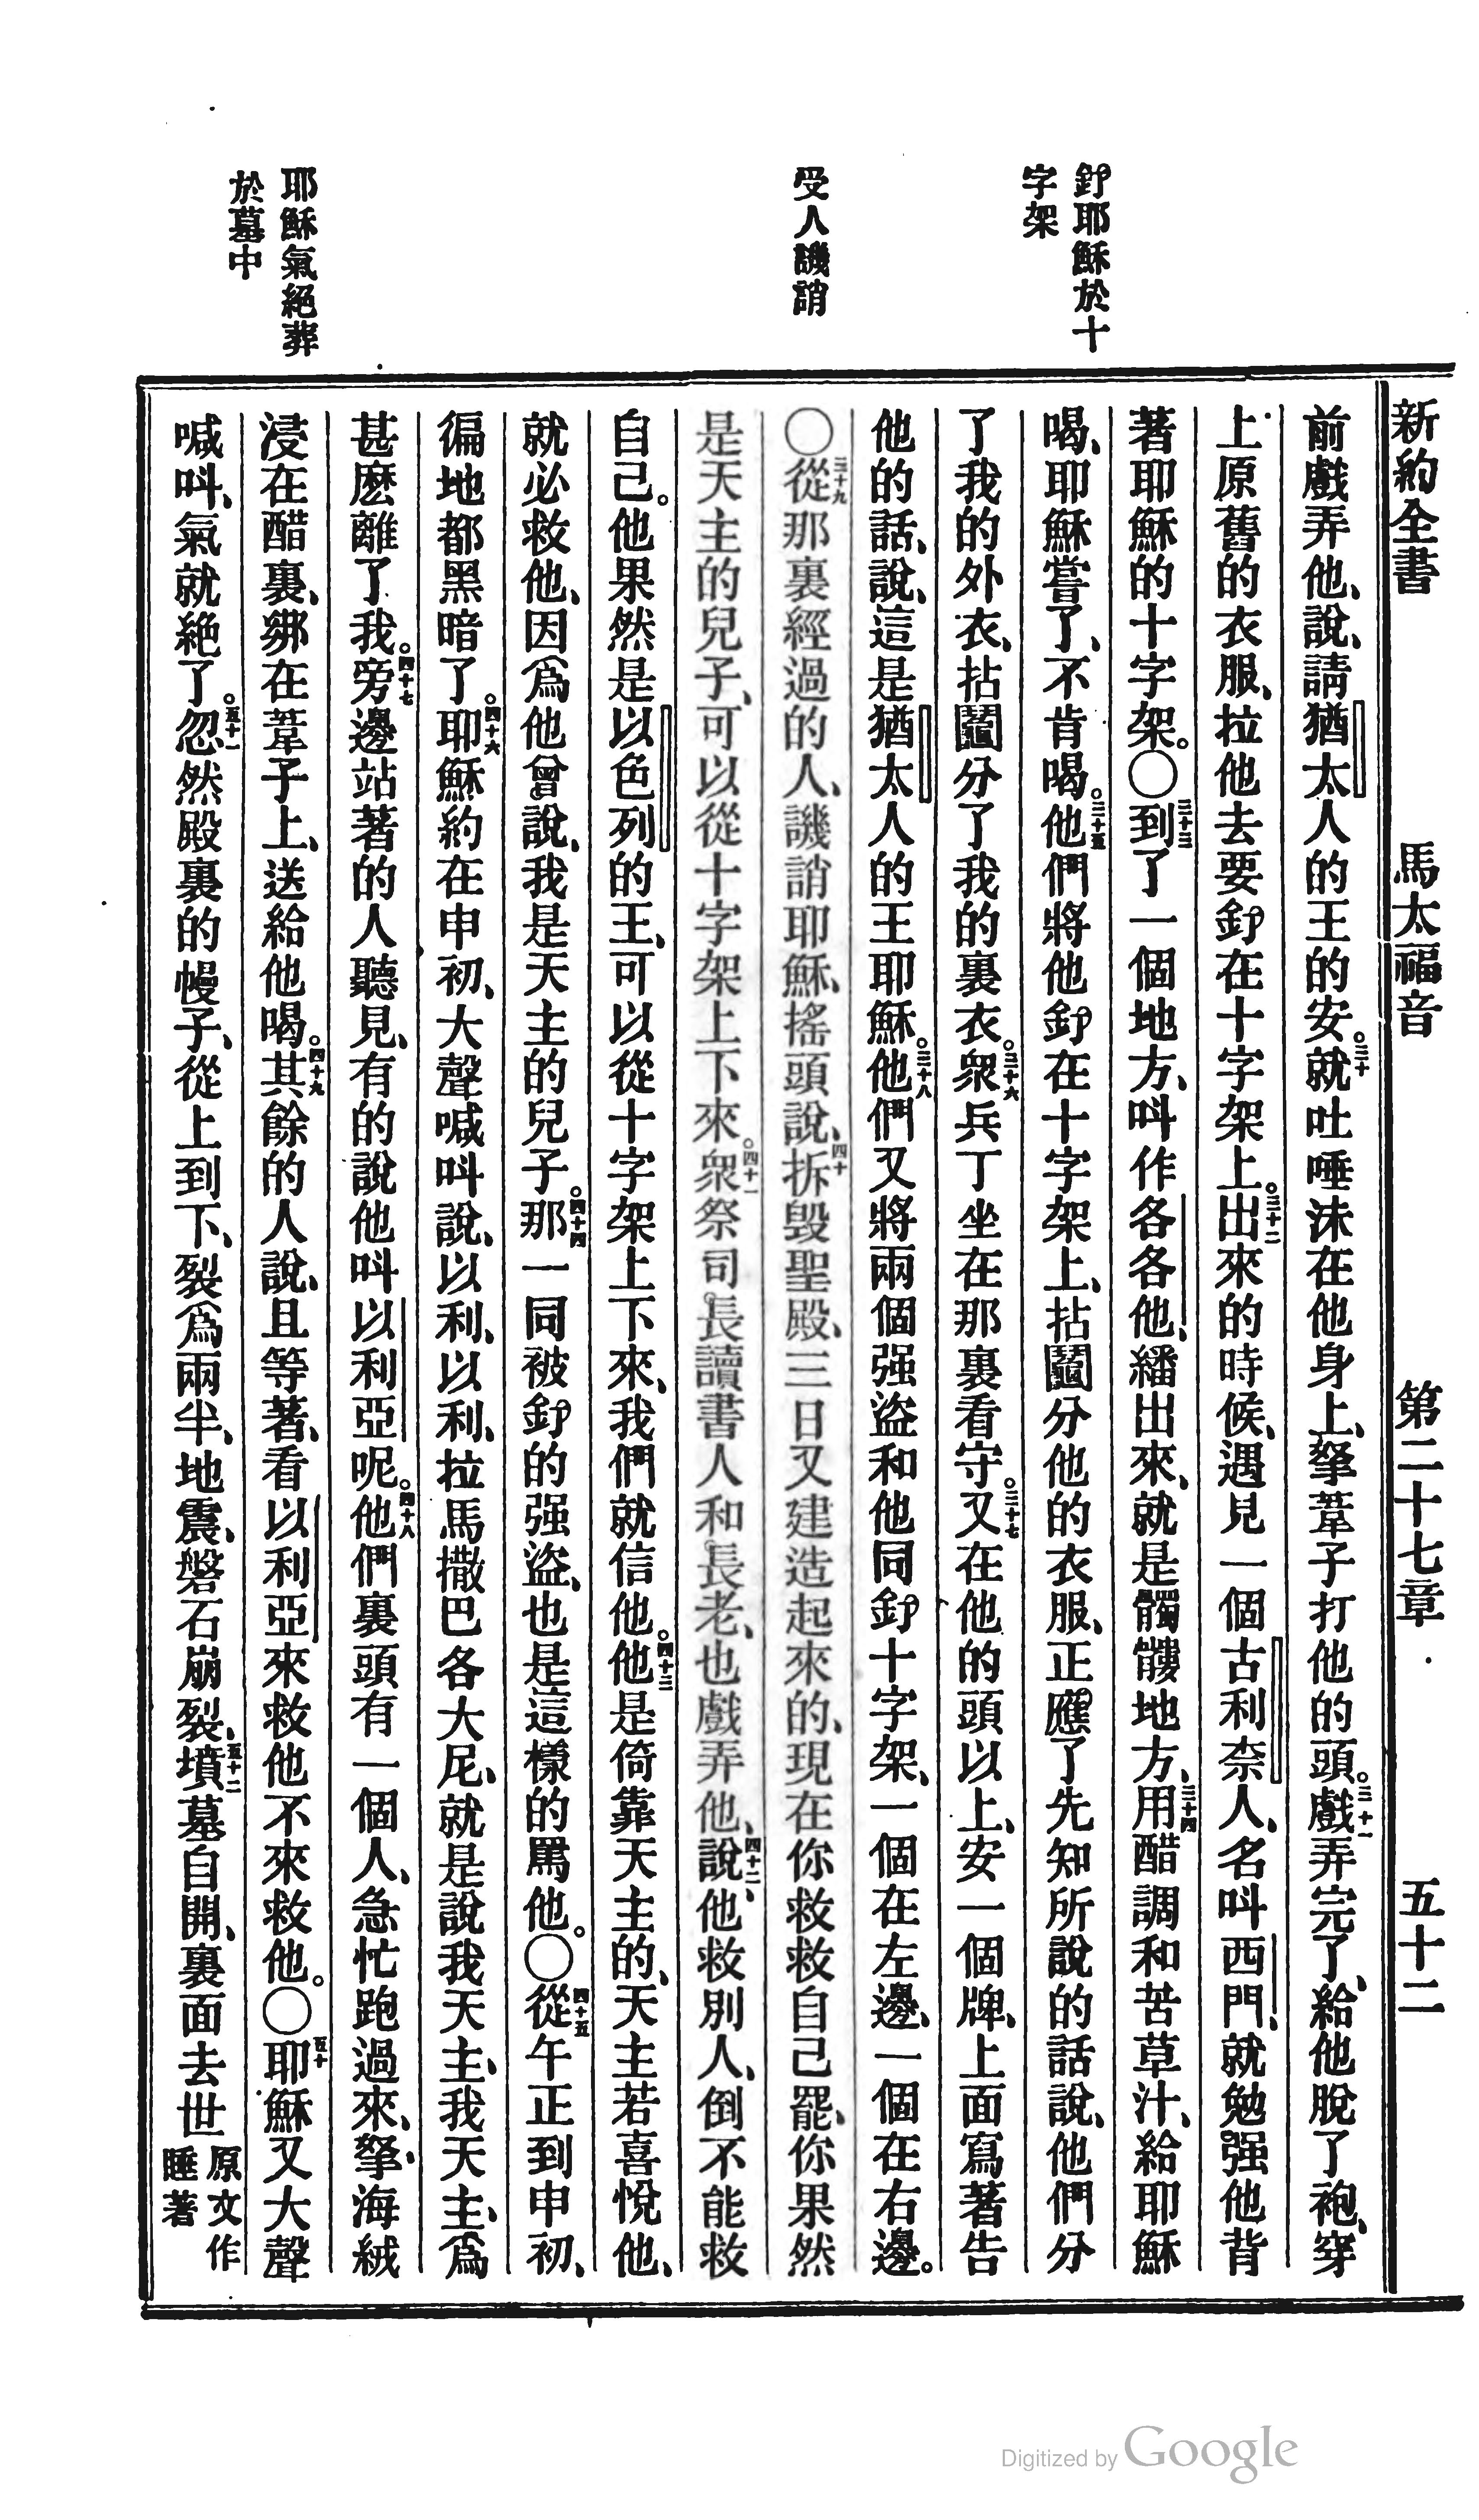 新約全書　馬太福音　第二十七章　五十二
釘耶穌於十
字架
受人譏誚
耶穌氣絕葬
於墓中
前戲弄他、說、請猶太人的王的安。三十就吐唾沫在他身上、拏葦子打他的頭。三十一戲弄完了、給他脫了袍、穿
上原舊的衣服、拉他去要釘在十字架上。三十二出來的時候、遇見一個古利奈人、名叫西門、就勉强他背
著耶穌的十字架。〇三十三到了一個地方、叫作各各他、繙出來、就是髑髏地方、三十四用醋調和苦草汁、給耶穌
喝、耶穌嘗了、不肯喝。三十五他們將他釘在十字架上、拈鬮分他的衣服、正應了先知所說的話說、他們分
了我的外衣、拈鬮分了我的裏衣。三十六衆兵丁坐在那裏看守。三十七又在他的頭以上、安一個牌、上面寫著告
他的話、說、這是猶太人的王耶穌。三十八他們又將兩個强盜和他同釘十字架、一個在左邊、一個在右邊。
〇三十九從那裏經過的人、譏誚耶穌、搖頭說、四十拆毀聖殿、三日又建造起來的、現在你救救自己罷、你果然
是天主的兒子、可以從十字架上下來。四十一衆祭司。長讀書人和。長老、也戲弄他、說、四十二他救別人、倒不能救
自己。他果然是以色列的王、可以從十字架上下來、我們就信他。四十三他是倚靠天主的、天主若喜悅他、
就必救他、因爲他曾說、我是天主的兒子。四十四那一同被釘的强盜、也是這樣的罵他。〇四十五從午正到申初、
徧地都黑暗了。四十六耶穌約在申初、大聲喊叫說、以利、以利、拉馬撒巴各大尼、就是說我天主、我天主、爲
甚麽離了我。四十七旁邊站著的人聽見、有的說他叫以利亞呢。四十八他們裏頭有一個人、急忙跑過來、拏海絨
浸在醋裏、綁在葦子上、送給他喝。四十九其餘的人說、且等著、看以利亞來救他不來救他。〇五十耶穌又大聲
喊叫、氣就絕了。五十一忽然殿裏的幔子、從上到下、裂爲兩半、地震、磐石崩裂、五十二墳墓自開、裏面去世原文作睡著
Digitized by Google